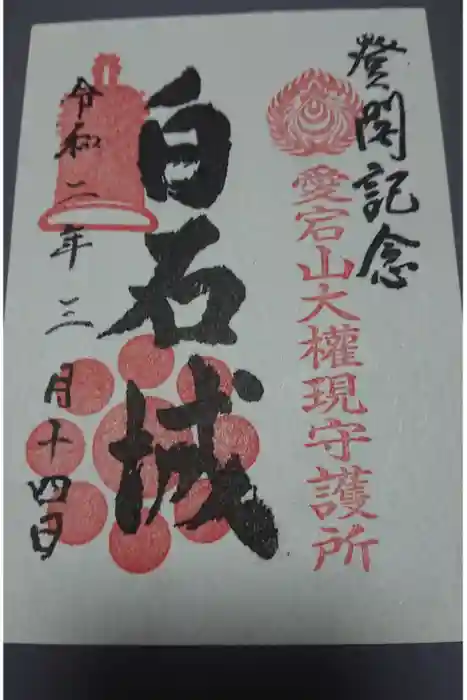 登閣記念
愛宕山大權現守護所
白石城
令和二年三月十四日